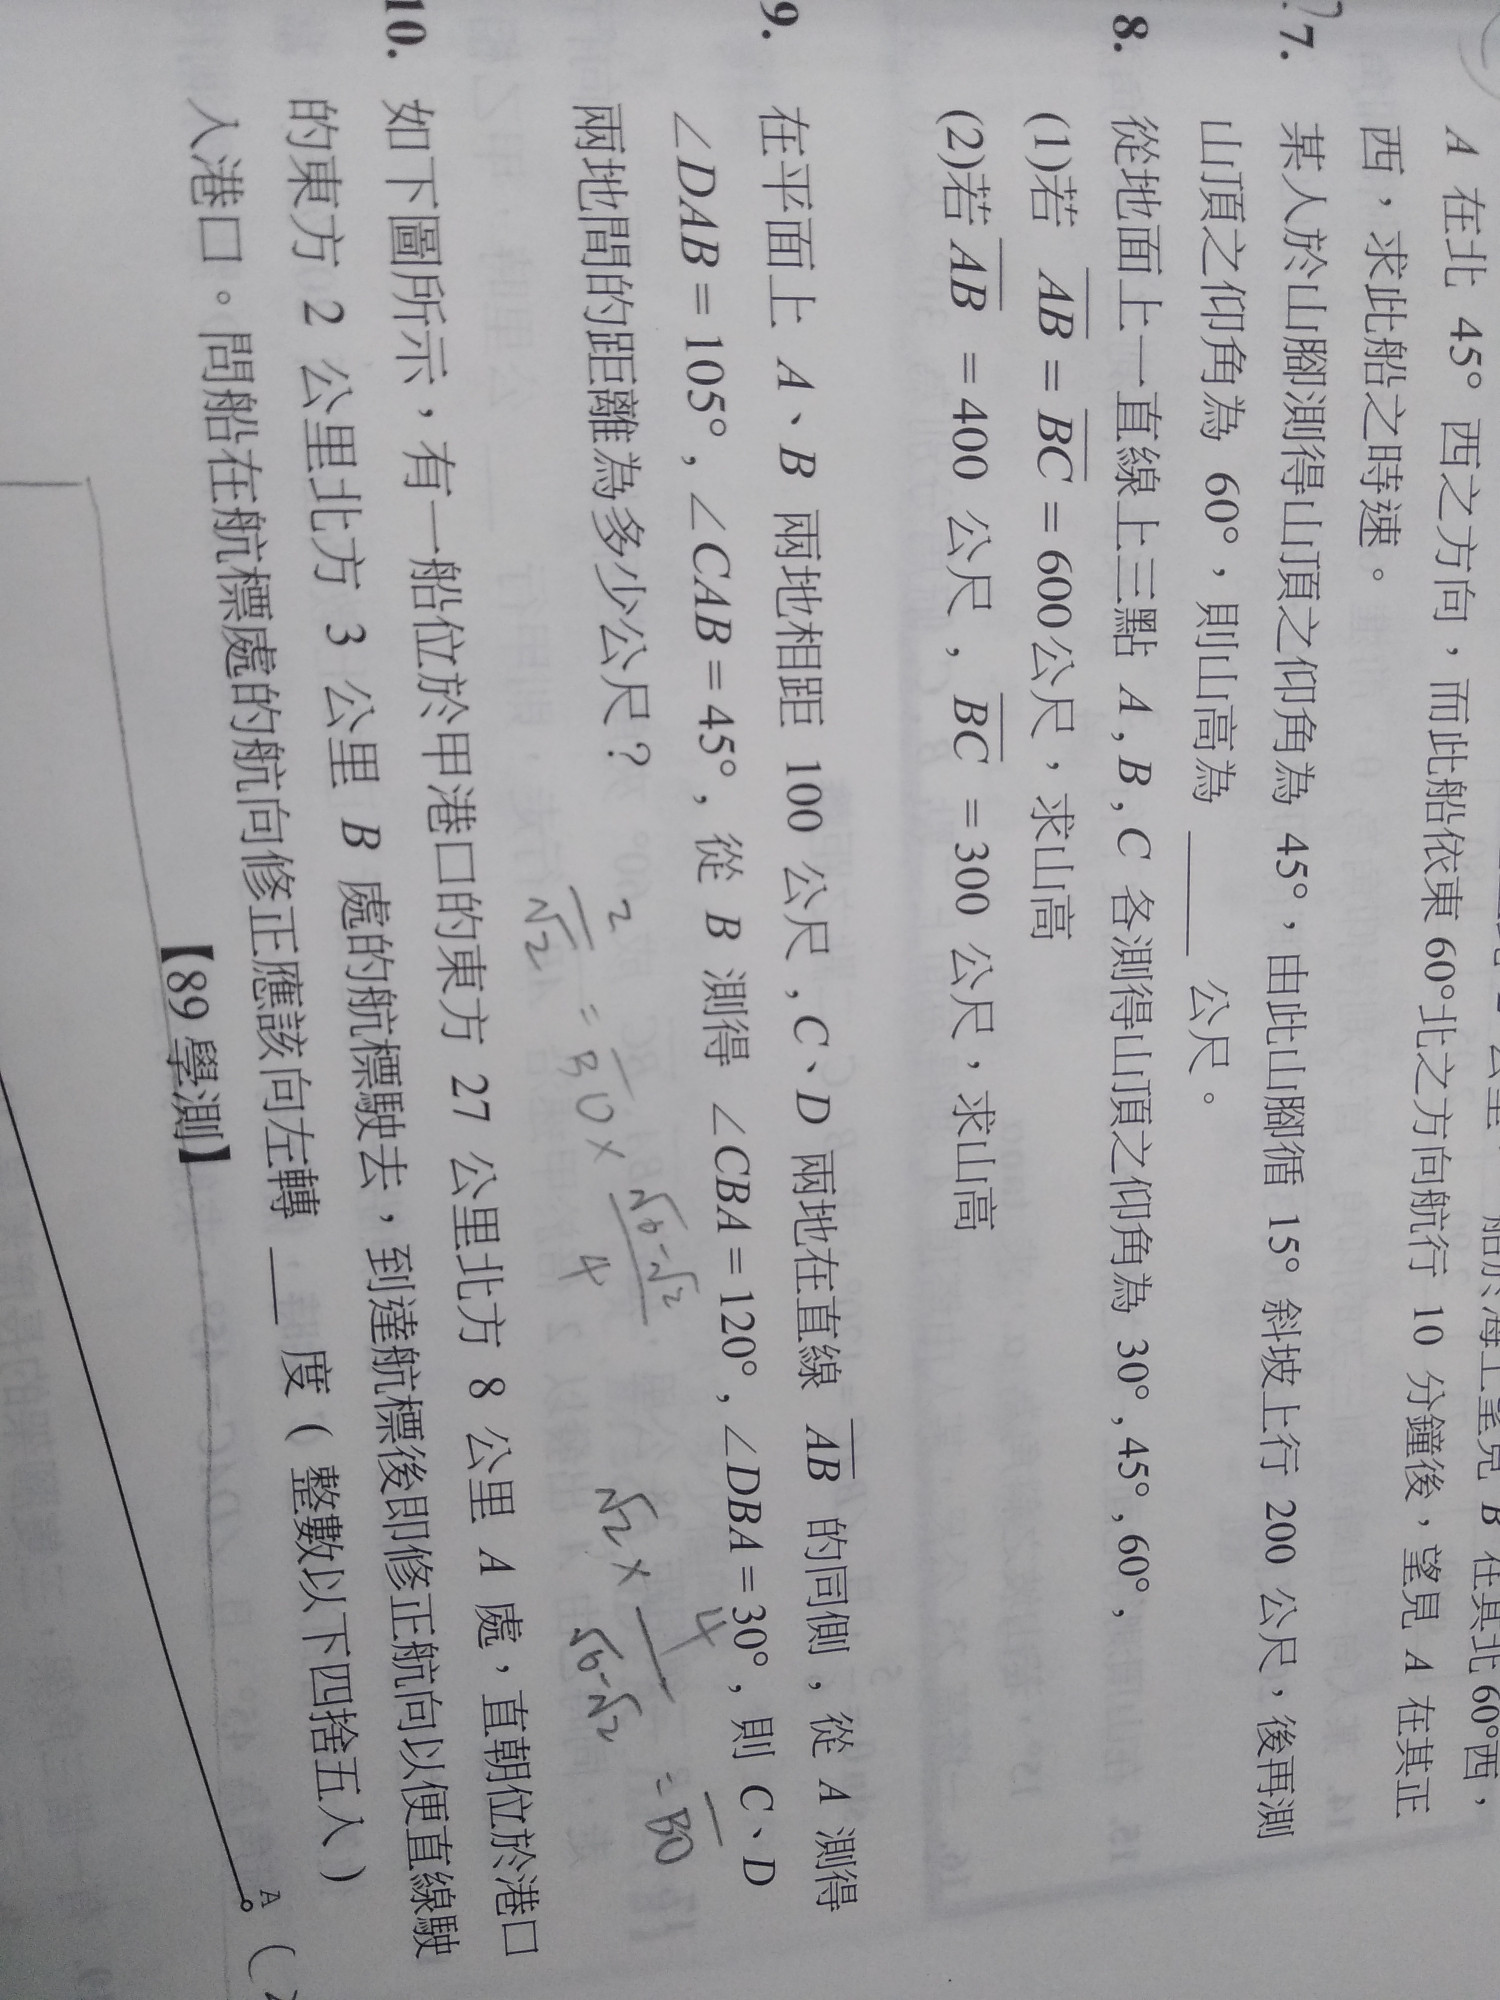 A 在北 45° 西之方向，而此船依東 60°北之方向航行 10 分鐘後，望見 A 在其正
西，求此船之時速。
7. 某人於山腳測得山頂之仰角為 45°，由此山腳循 15° 斜坡上行 200 公尺，後再測
山頂之仰角為 60°，則山高為 ______ 公尺。
8. 從地面上一直線上三點 A , B , C 各測得山頂之仰角為 30° , 45° , 60°，
(1)若 AB = BC = 600公尺，求山高
(2)若 AB = 400 公尺，BC = 300 公尺，求山高
9. 在平面上 A、B 兩地相距 100 公尺，C、D 兩地在直線 AB 的同側，從 A 測得
∠DAB = 105°，∠CAB = 45°，從 B 測得 ∠CBA = 120°，∠DBA = 30°，則 C、D
兩地間的距離為多少公尺？
2/√2 = BO × (√6-√2)/4
√2 × 4/(√6-√2) = BO
10. 如下圖所示，有一船位於甲港口的東方 27 公里北方 8 公里 A 處，直朝位於港口
的東方 2 公里北方 3 公里 B 處的航標駛去，到達航標後即修正航向以便直線駛
入港口。問船在航標處的航向修正應該向左轉 ___ 度 ( 整數以下四捨五入 )
【89 學測】
A (